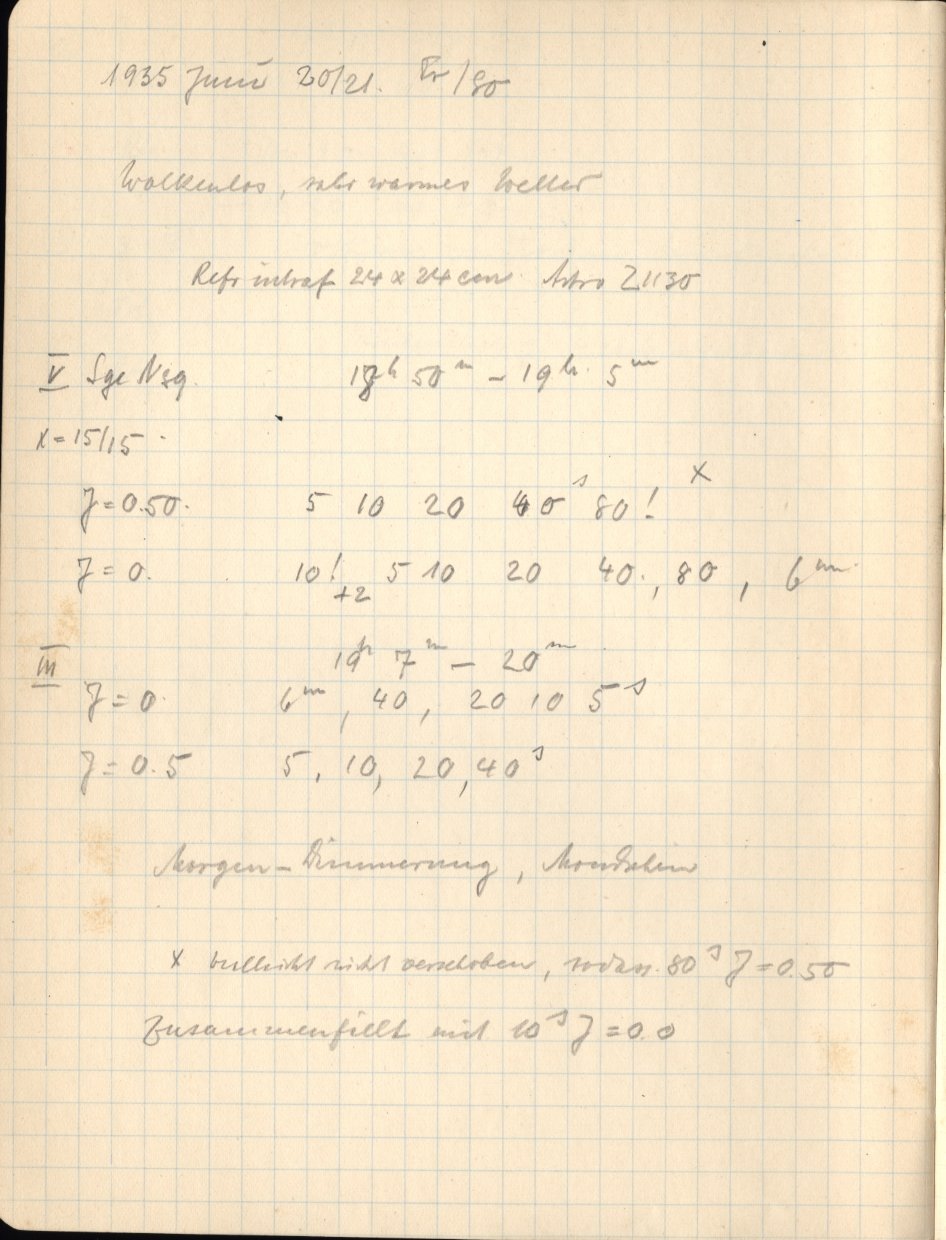 1935 Juni 20/21. Fr/80
Wolkenlos, sehr warmes Wetter
Refr intraf 24 x 24 cm Astro Z1130
V Sge Nsg. 18h 50m – 19h. 5m
X = 15/15
J = 0.50. 5 10 20 40s 80! x
J = 0. 10! +2 5 10 20 40., 80, 6m
III 19h 7m – 20m
J = 0. 6m, 40, 20 10 5s
J = 0.5 5, 10, 20, 40s
Morgen-Dämmerung, Mondschein
x vielleicht nicht verschoben, sodass 80s J = 0.50
Zusammenfällt mit 10s J = 0.0